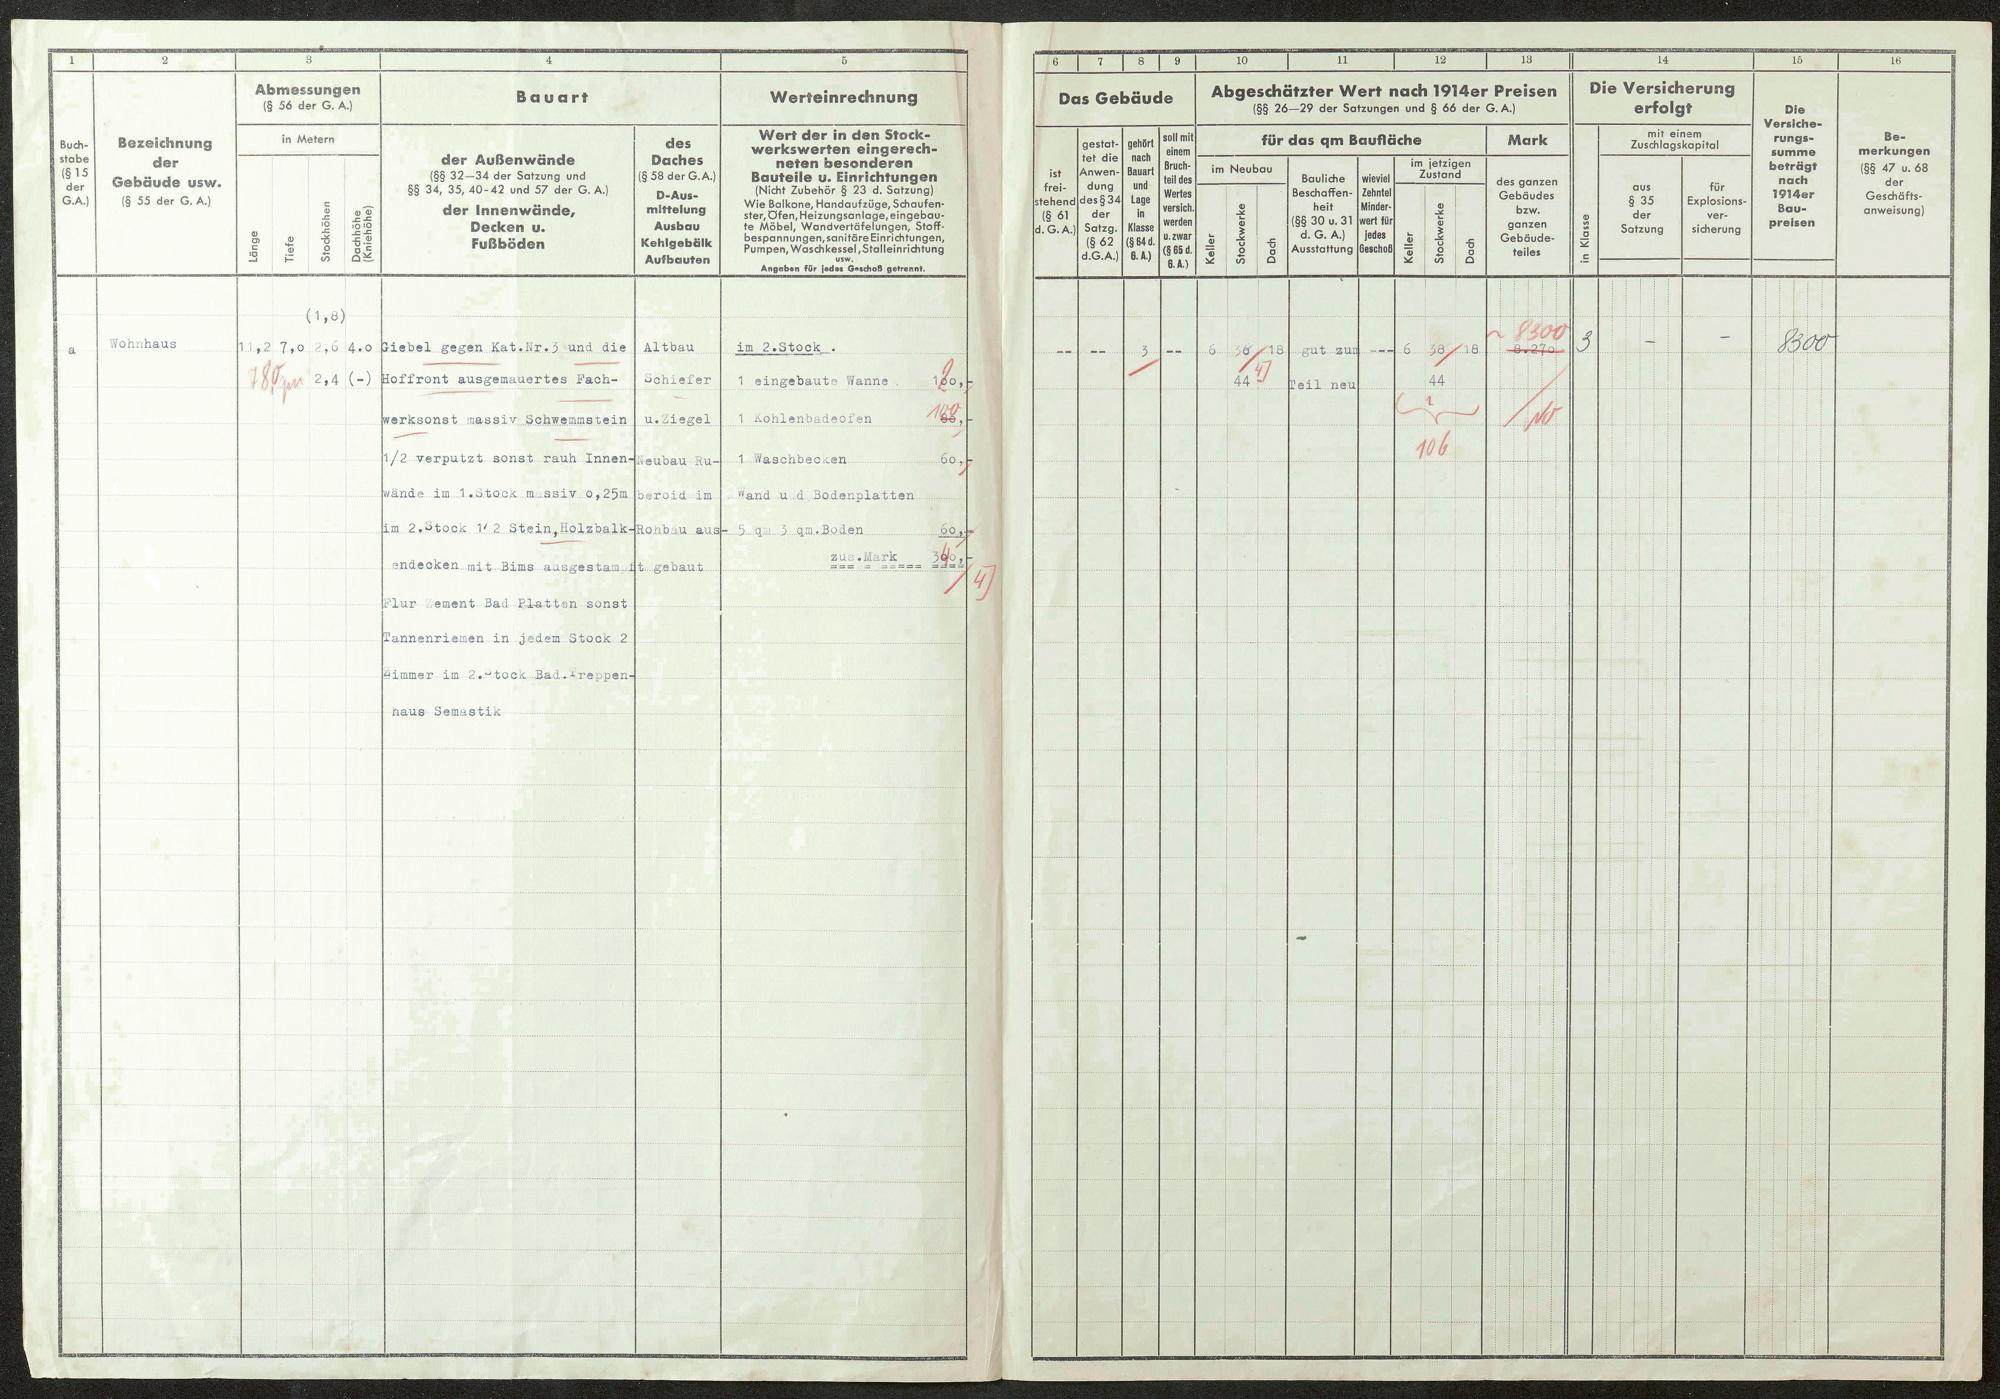 1
2
3
4
5
6
7
8
9
10
11
12
13
14
15
16
Buch-
stabe
(§ 15
der
G.A.)
Bezeichnung
der
Gebäude usw.
(§ 55 der G. A.)
Abmessungen
(§ 56 der G. A.)
in Metern
Länge
Tiefe
Stockhöhen
Dachhöhe
(Kniehöhe)
Bauart
der Außenwände
(§§ 32—34 der Satzung und
§§ 34, 35, 40-42 und 57 der G. A.)
der Innenwände,
Decken u.
Fußböden
des
Daches
(§ 58 der G.A.)
D-Aus-
mittelung
Ausbau
Kehlgebälk
Aufbauten
Werteinrechnung
Wert der in den Stock-
werkswerten eingerech-
neten besonderen
Bauteile u. Einrichtungen
(Nicht Zubehör § 23 d. Satzung)
Wie Balkone, Handaufzüge, Schaufen-
ster, Öfen, Heizungsanlage, eingebau-
te Möbel, Wandvertäfelungen, Stoff-
bespannungen, sanitäre Einrichtungen,
Pumpen, Waschkessel, Stalleinrichtung
usw.
Angaben für jedes Geschoß getrennt.
Das Gebäude
ist
frei-
stehend
(§ 61
d. G. A.)
gestat-
tet die
Anwen-
dung
des § 34
der
Satzg.
(§ 62
d.G.A.)
gehört
nach
Bauart
und
Lage
in
Klasse
(§ 64 d.
G. A.)
soll mit
einem
Bruch-
teil des
Wertes
versich.
werden
u. zwar
(§ 65 d.
G. A.)
Abgeschätzter Wert nach 1914er Preisen
(§§ 26—29 der Satzungen und § 66 der G. A.)
für das qm Baufläche
im Neubau
Keller
Stockwerke
Dach
Bauliche
Beschaffen-
heit
(§§ 30 u. 31
d. G. A.)
Ausstattung
wieviel
Zehntel
Minder-
wert für
jedes
Geschoß
im jetzigen
Zustand
Keller
Stockwerke
Dach
Mark
des ganzen
Gebäudes
bzw.
ganzen
Gebäude-
teiles
Die Versicherung
erfolgt
in Klasse
mit einem
Zuschlagskapital
aus
§ 35
der
Satzung
für
Explosions-
ver-
sicherung
Die
Versiche-
rungs-
summe
beträgt
nach
1914er
Bau-
preisen
Be-
merkungen
(§§ 47 u. 68
der
Geschäfts-
anweisung)
a
Wohnhaus
(1,8)
11,2 7,0 2,6 4.0
2,4 (-)
Giebel gegen Kat.Nr.3 und die
Hoffront ausgemauertes Fach-
werksonst massiv Schwemmstein
1/2 verputzt sonst rauh Innen-
wände im 1.Stock massiv o,25m
im 2.Stock 1/2 Stein,Holzbalk-
endecken mit Bims ausgestampft
Flur Zement Bad Platten sonst
Tannenriemen in jedem Stock 2
Zimmer im 2.Stock Bad.Treppen-
haus Semastik
Altbau
Schiefer
u.Ziegel
Neubau Ru-
beroid im
Rohbau aus-
gebaut
im 2.Stock.
1 eingebaute Wanne
1 Kohlenbadeofen 100
1 Waschbecken 60,-
Wand und Bodenplatten
5 qm 3 qm.Boden 60,-
zus.Mark
-- -- 3 -- 6 18 gut zum --- 6 38 18 8.270
8300
44 Teil neu 44
106
3 - - 8300